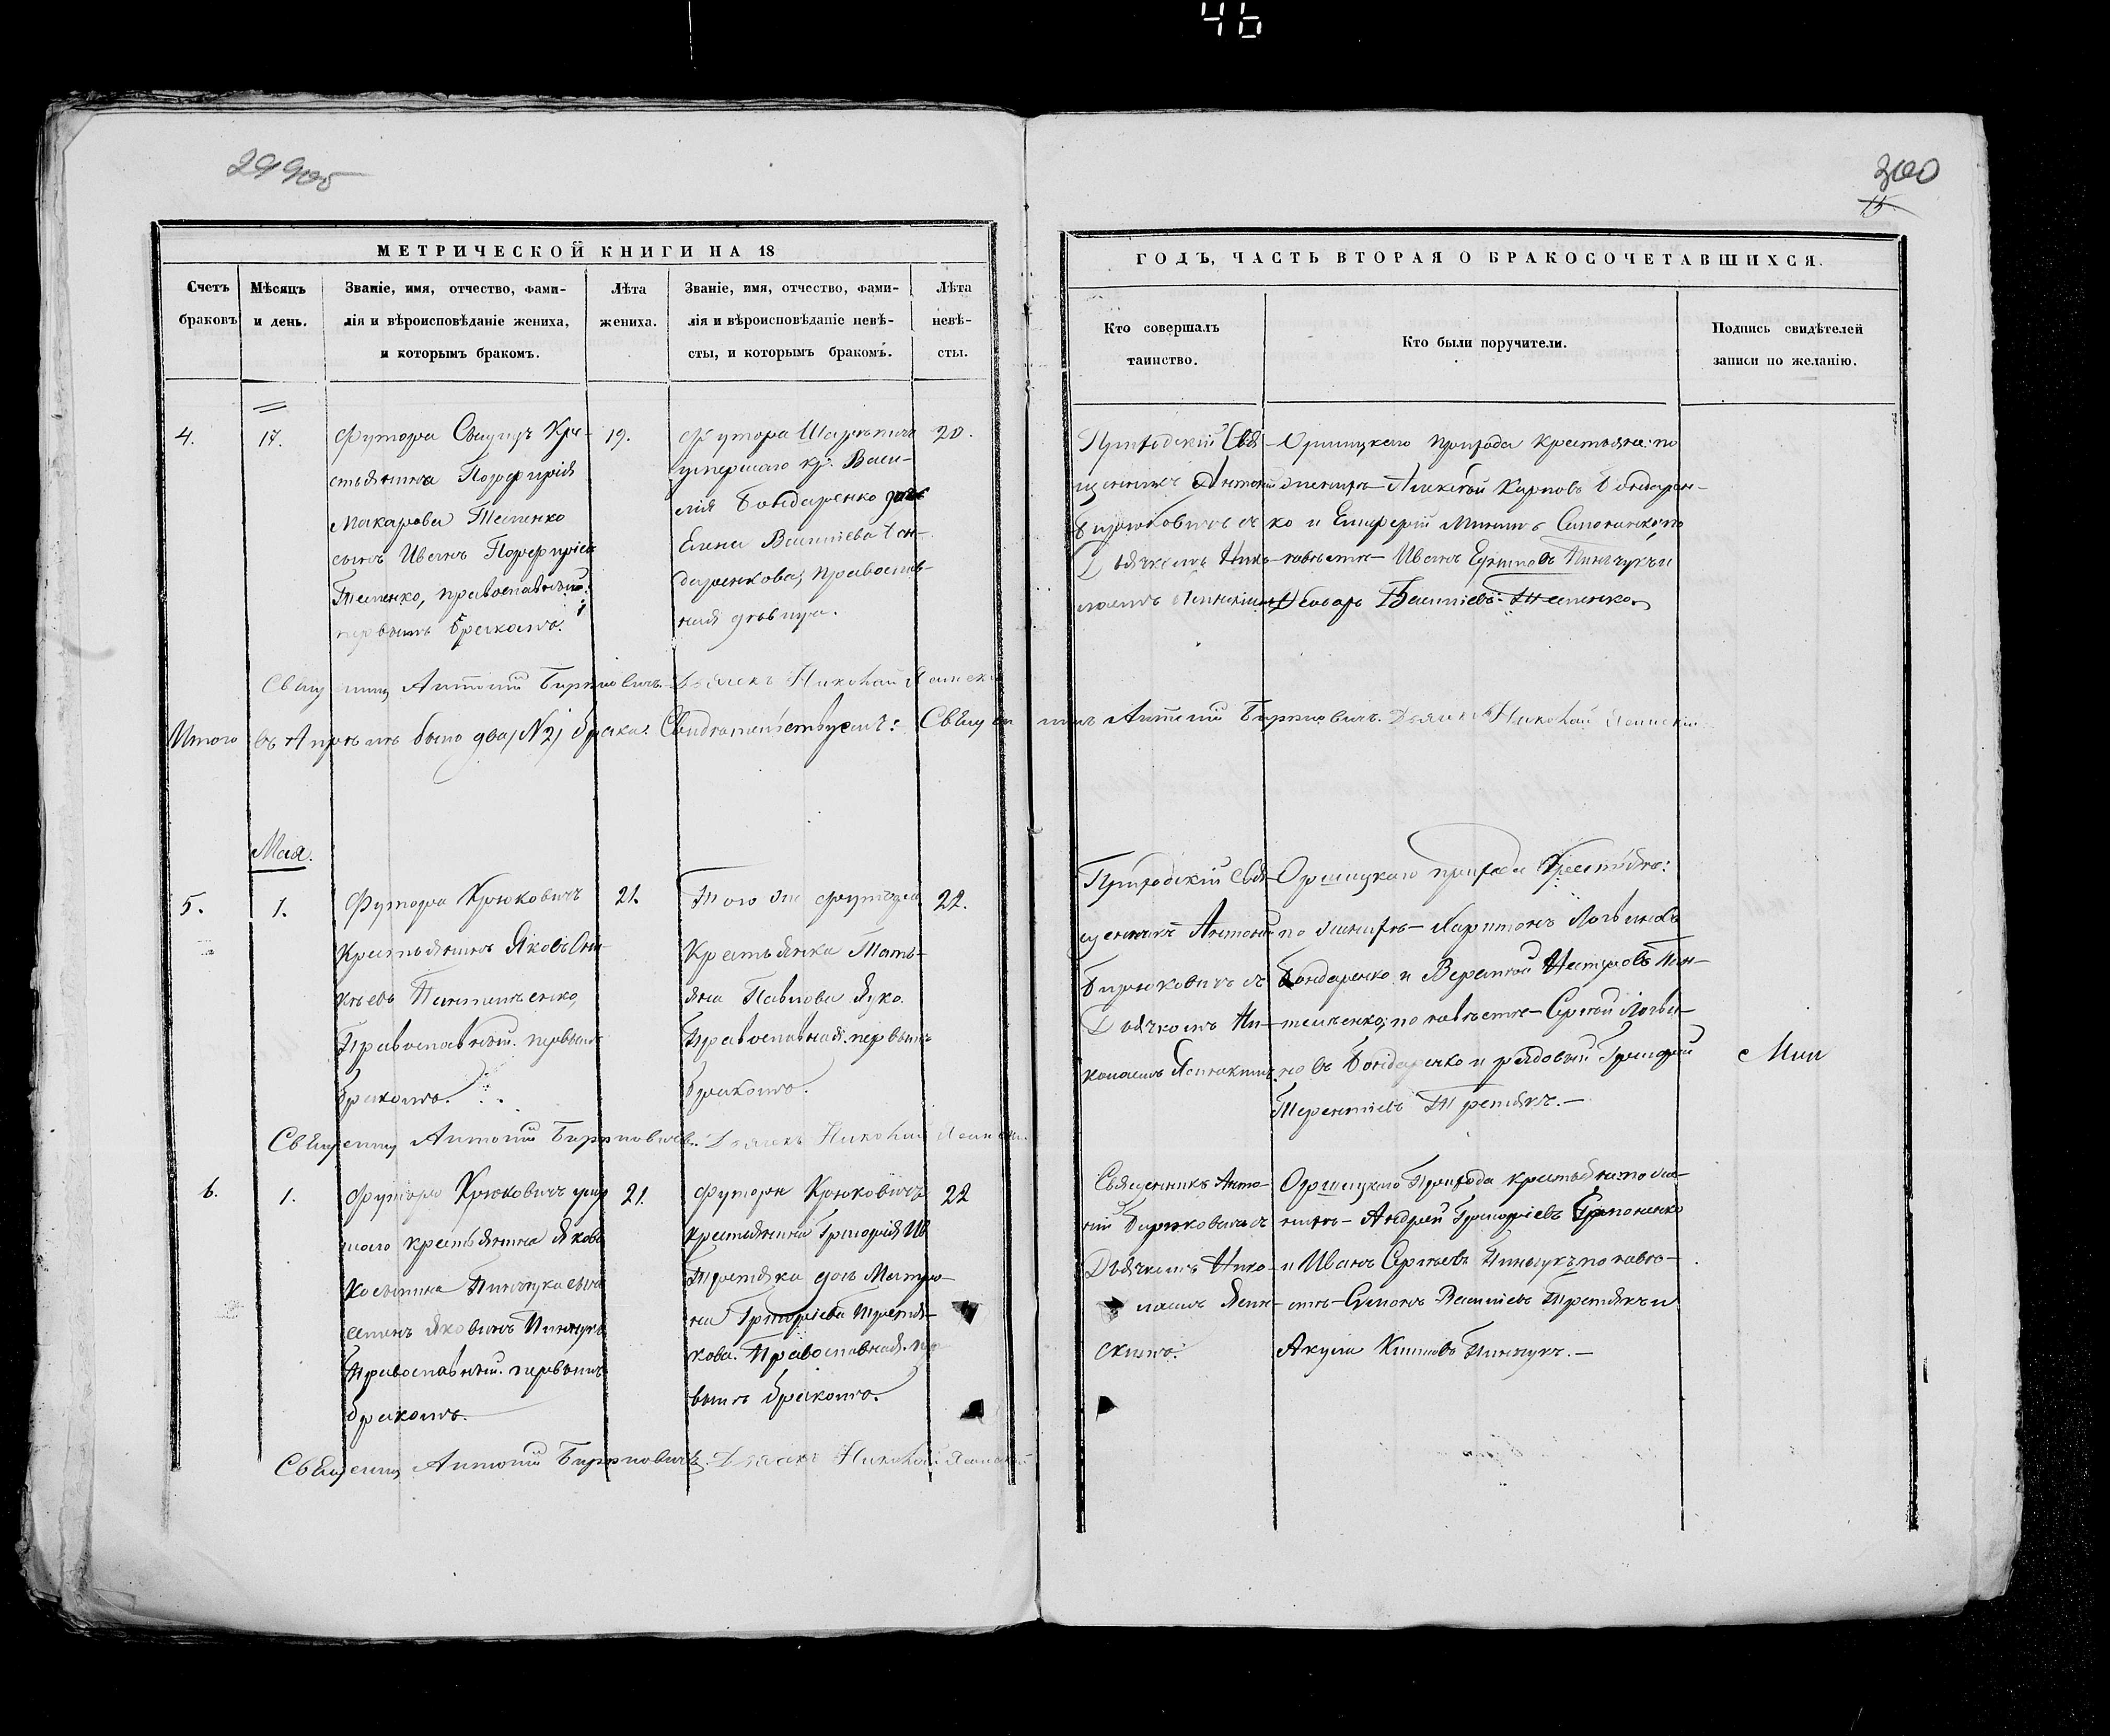 46
299об
300
МЕТРИЧЕСКОЙ КНИГИ НА 18
ГОДЪ, ЧАСТЬ ВТОРАЯ О БРАКОСОЧЕТАВШИХСЯ.
Счетъ браковъ
Мѣсяцъ и день.
Званіе, имя, отчество, фами-
лія и вѣроисповѣданіе жениха,
и которымъ бракомъ.
Лѣта жениха.
Званіе, имя, отчество, фами-
лія и вѣроисповѣданіе невѣ-
сты, и которымъ бракомъ.
Лѣта невѣ-
сты.
Кто совершалъ
таинство.
Кто были поручители.
Подпись свидѣтелей
записи по желанію.
4.
17.
Футора Кре-
стьянина Порфирія
Макарова Тепенко
сынъ Иванъ Порфиріевъ
Тепенко, православный
первымъ бракомъ.
19.
Футора
умершаго кр. Васи-
лія Бондаренко дочь
Елена Васильева Бон-
даренкова, православ-
ная дѣвица.
20.
Приходскій Свя-
щенникъ Антоній
Бирюковичъ съ
Дьячкомъ Нико-
лаемъ
Оршицкаго прихода крестьяне: по
женихѣ Алексѣй Карповъ Бондарен-
ко и Елиферій
невѣстѣ Иванъ Пинчукъ и
Васильевъ Тепенко.
Священникъ Антоній Бирюковичъ. Дьячекъ Николай
Итого въ Апрѣлѣ было два, №2, брака. Свидѣтельствуемъ: Священникъ Антоній Бирюковичъ. Дьячекъ Николай
Мая.
5.
1.
Футора Крюковичъ
Крестьянинъ Яковъ
Пантеленко,
Православный. первымъ
бракомъ.
21.
Того же футора
Крестьянка Тать-
яна Павлова
Православная. первымъ
бракомъ.
22.
Приходскій Свя-
щенникъ Антоній
Бирюковичъ съ
Дьячкомъ Ни-
колаемъ
Оршицкаго прихода Крестьяне:
по женихѣ Харитонъ Логвиновъ
Бондаренко и Нестеровъ Пан-
теленко; по невѣстѣ Сергѣй Логви-
новъ Бондаренко и рядовый Григорій
Терентіевъ Третякъ.
Священникъ Антоній Бирюковичъ. Дьячекъ Николай
6.
1.
Футора Крюковичъ умер-
шаго крестьянина Якова
Косьмина Пинчука сынъ
Яковлевъ Пинчукъ
Православный. первымъ
бракомъ.
21.
Футора Крюковичъ
крестьянина Григорія
Третяка дочь Матро-
на Григоріева Третя-
кова. Православная. пер-
вымъ бракомъ.
22
Священникъ Анто-
ній Бирюковичъ съ
Дьячкомъ Нико-
лаемъ
скимъ.
Оршицкаго Прихода крестьяне: по же-
нихѣ Андрей Григоріевъ
и Иванъ Сергѣевъ Пинчукъ; по невѣ-
стѣ Симонъ Васильевъ Третякъ и
Климовъ Пинчукъ.
Священникъ Антоній Бирюковичъ. Дьячекъ Николай